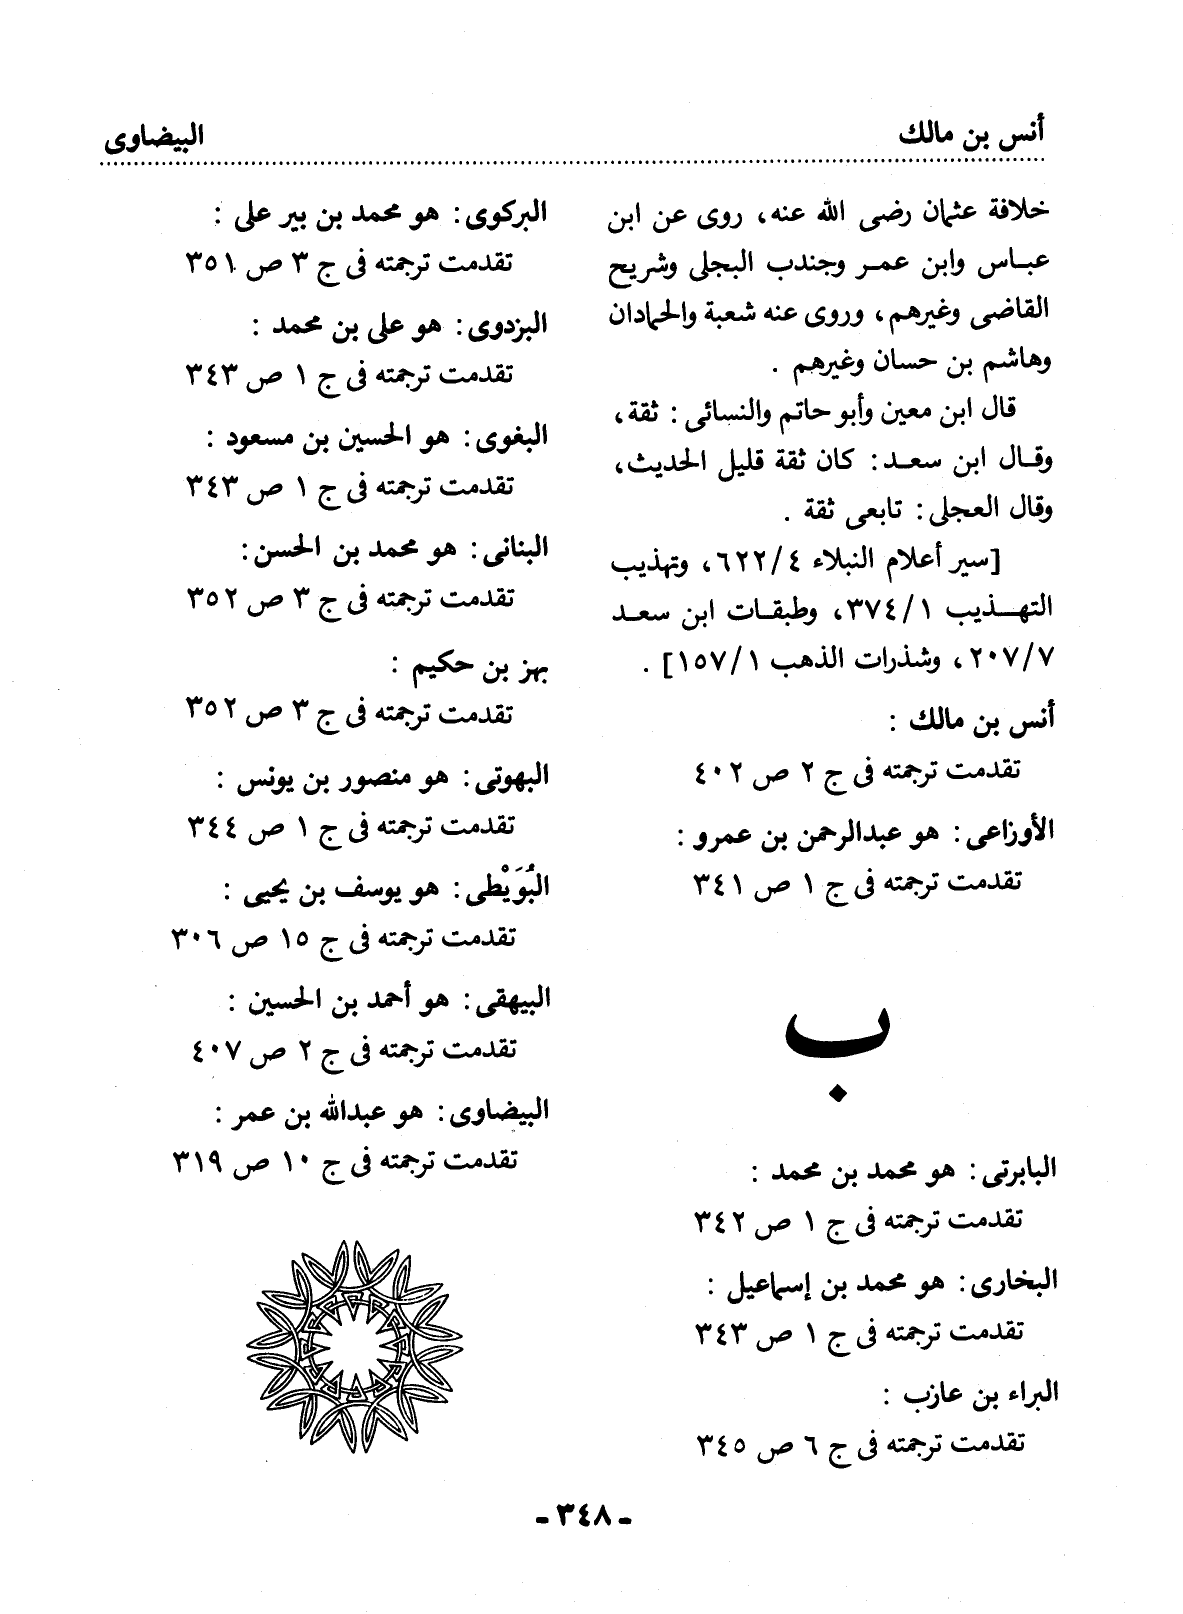 أنس بن مالك
البيضاوى
خلافة عثمان رضى الله عنه، روى عن ابن
عباس وابن عمر وجندب البجلى وشريح
القاضى وغيرهم، وروى عنه شعبة والحمادان
وهاشم بن حسان وغيرهم .
قال ابن معين وأبو حاتم والنسائى : ثقة،
وقال ابن سعد : كان ثقة قليل الحديث،
وقال العجلى : تابعى ثقة .
[سير أعلام النبلاء ٦٢٢/٤، وتهذيب
التهذيب ٣٧٤/١، وطبقات ابن سعد
٢٠٧/٧، وشذرات الذهب ١٥٧/١] .
أنس بن مالك :
تقدمت ترجمته فى ج ٢ ص ٤٠٢
الأوزاعى : هو عبدالرحمن بن عمرو :
تقدمت ترجمته فى ج ١ ص ٣٤١
ب
البابرتى : هو محمد بن محمد :
تقدمت ترجمته فى ج ١ ص ٣٤٢
البخارى : هو محمد بن إسماعيل :
تقدمت ترجمته فى ج ١ ص ٣٤٣
البراء بن عازب :
تقدمت ترجمته فى ج ٦ ص ٣٤٥
البركوى : هو محمد بن بير على :
تقدمت ترجمته فى ج ٣ ص ٣٥١
البزدوى : هو على بن محمد :
تقدمت ترجمته فى ج ١ ص ٣٤٣
البغوى : هو الحسين بن مسعود :
تقدمت ترجمته فى ج ١ ص ٣٤٣
البنانى : هو محمد بن الحسن :
تقدمت ترجمته فى ج ٣ ص ٣٥٢
بهز بن حكيم :
تقدمت ترجمته فى ج ٣ ص ٣٥٢
البهوتى : هو منصور بن يونس :
تقدمت ترجمته فى ج ١ ص ٣٤٤
البُوَيْطى : هو يوسف بن يحيى :
تقدمت ترجمته فى ج ١٥ ص ٣٠٦
البيهقى : هو أحمد بن الحسين :
تقدمت ترجمته فى ج ٢ ص ٤٠٧
البيضاوى : هو عبدالله بن عمر :
تقدمت ترجمته فى ج ١٠ ص ٣١٩
- ٣٤٨ -